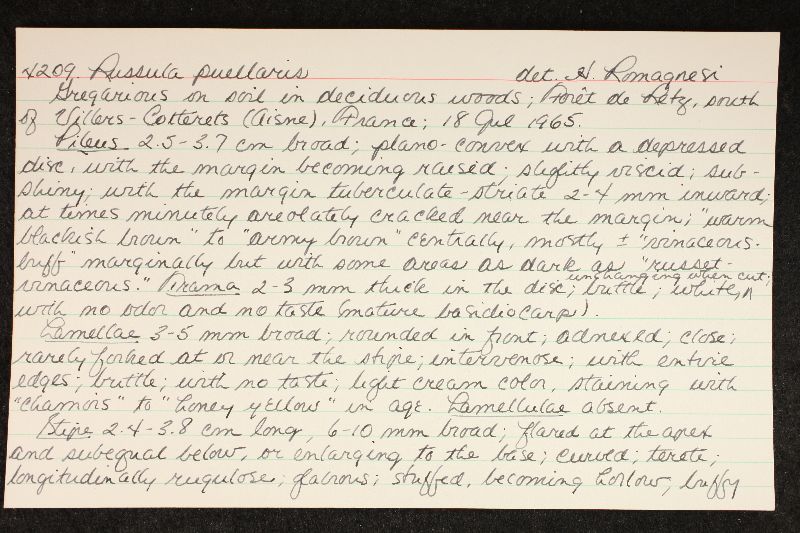 4209. Russula puellaris det. H. Romagnesi
Gregarious on soil in deciduous woods; Forêt de Retz, south
of Villers-Cotterets (Aisne), France; 18 Jul 1965.
Pileus 2.5-3.7 cm broad; plano-convex with a depressed
disc, with the margin becoming raised; slightly viscid; sub-
shiny; with the margin tuberculate-striate 2-4 mm inward;
at times minutely areolately cracked near the margin; "warm
blackish brown" to "army brown" centrally, mostly ± "vinaceous-
buff" marginally but with some areas as dark as "russet-
unchanging when cut;
vinaceous." Trama 2-3 mm thick in the disc; brittle; white, ∧
with no odor and no taste (mature basidiocarps).
Lamellae 3-5 mm broad; rounded in front; adnexed; close;
rarely forked at or near the stipe; intervenose; with entire
edges; brittle; with no taste; light cream color, staining with
"chamois" to "honey yellow" in age. Lamellulae absent.
Stipe 2.4-3.8 cm long, 6-10 mm broad; flared at the apex
and subequal below, or enlarging to the base; curved; terete;
longitudinally rugulose; glabrous; stuffed, becoming hollow; buffy